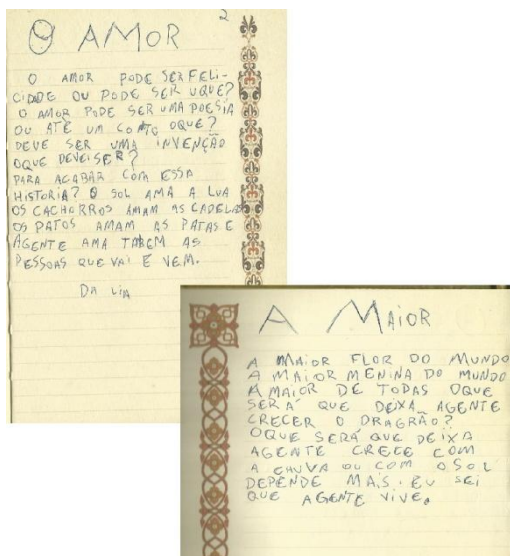 2
O AMOR
O AMOR PODE SER FELI-
CIDADE OU PODE SER UQUE?
O AMOR PODE SER UMA POESIA
OU ATÉ UM CONTO OQUE?
DEVE SER UMA INVENÇÃO
OQUE DEVEISER?
PARA ACABAR COM ESSA
HISTORIA? O SOL AMA A LUA
OS CACHORROS AMAM AS CADELAS
OS PATOS AMAM AS PATAS E
AGENTE AMA TABEM AS
PESSOAS QUE VAI E VEM.
DA LIA
A MAIOR
A MAIOR FLOR DO MUNDO
A MAIOR MENINA DO MUNDO
A MAIOR DE TODAS OQUE
SERÁ QUE DEIXA AGENTE
CRECER O DRAGRÃO?
OQUE SERÁ QUE DEIXA
AGENTE CRECE COM
A CHUVA OU COM OSOL
DEPENDE MAIS. EU SEI
QUE AGENTE VIVE.